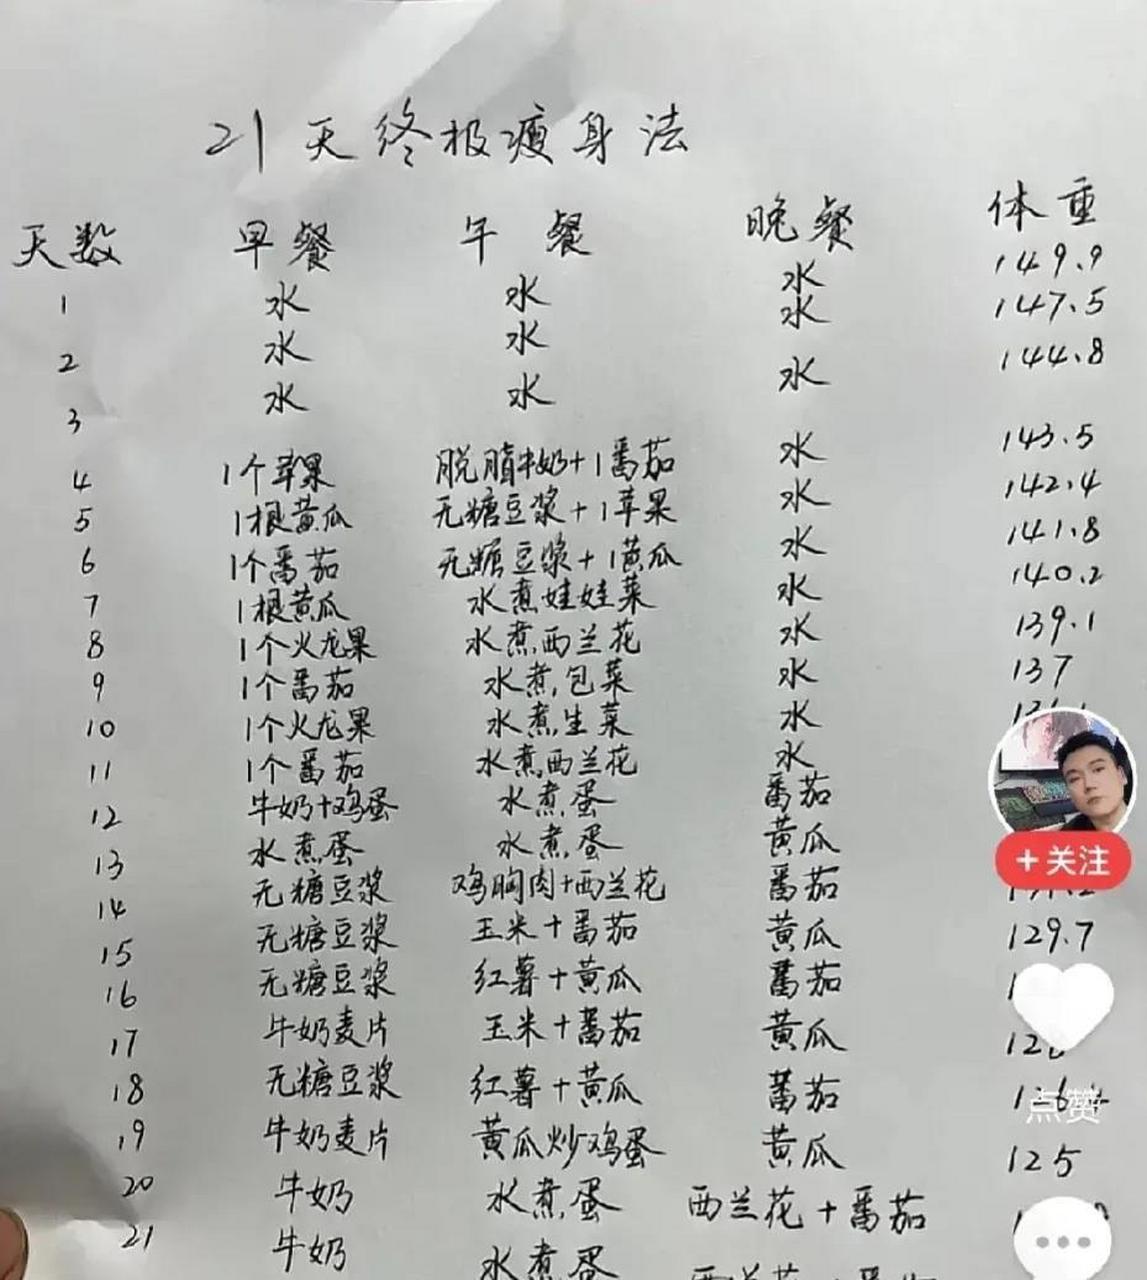 21天终极瘦身法
天数 早餐 午餐 晚餐 体重
1 水 水 水 149.9
2 水 水 水 147.5
3 水 水 水 144.8
4 1个苹果 脱脂牛奶+1番茄 水 143.5
5 1根黄瓜 无糖豆浆+1苹果 水 142.4
6 1个番茄 无糖豆浆+1黄瓜 水 141.8
7 1根黄瓜 水煮娃娃菜 水 140.2
8 1个火龙果 水煮西兰花 水 139.1
9 1个番茄 水煮包菜 水 137
10 1个火龙果 水煮生菜 水
11 1个番茄 水煮西兰花 水
12 牛奶+鸡蛋 水煮蛋 番茄
13 水煮蛋 水煮蛋 黄瓜
+关注
14 无糖豆浆 鸡胸肉+西兰花 番茄
15 无糖豆浆 玉米+番茄 黄瓜 129.7
16 无糖豆浆 红薯+黄瓜 番茄
17 牛奶麦片 玉米+番茄 黄瓜
18 无糖豆浆 红薯+黄瓜 番茄
点赞
19 牛奶麦片 黄瓜炒鸡蛋 黄瓜 125
20 牛奶 水煮蛋 西兰花+番茄
21 牛奶 水煮蛋 西兰花+番茄